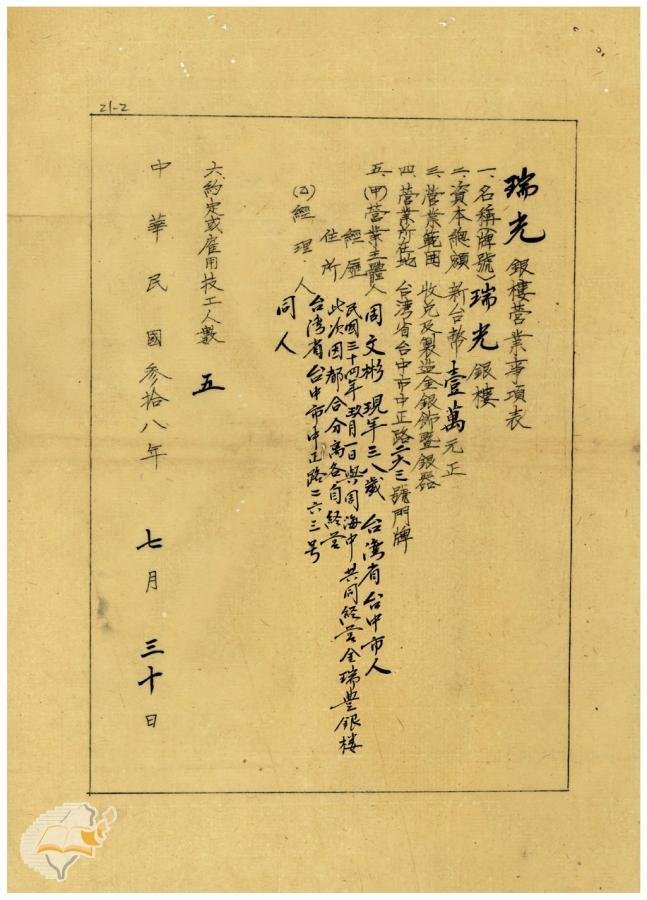 21-2
瑞光銀樓營業事項表
一、名稱(牌號)瑞光銀樓
二、資本總額 新台幣壹萬元正
三、營業範圍 收兌及製造金銀飾暨銀器
四、營業所在地 台灣省台中市中正路二六三號門牌
五、(甲)營業主體人 周文彬 現年三八歲 台灣省台中市人
經歷 民國三十四年玖月一日與周海中共同経营金瑞豊銀樓
此次因都合分离各自経营
住所 台湾省台中市中正路二六三号
(乙)經理人 同人
六、約定或雇用技工人數 五
中華民國參拾八年 七月 三十日